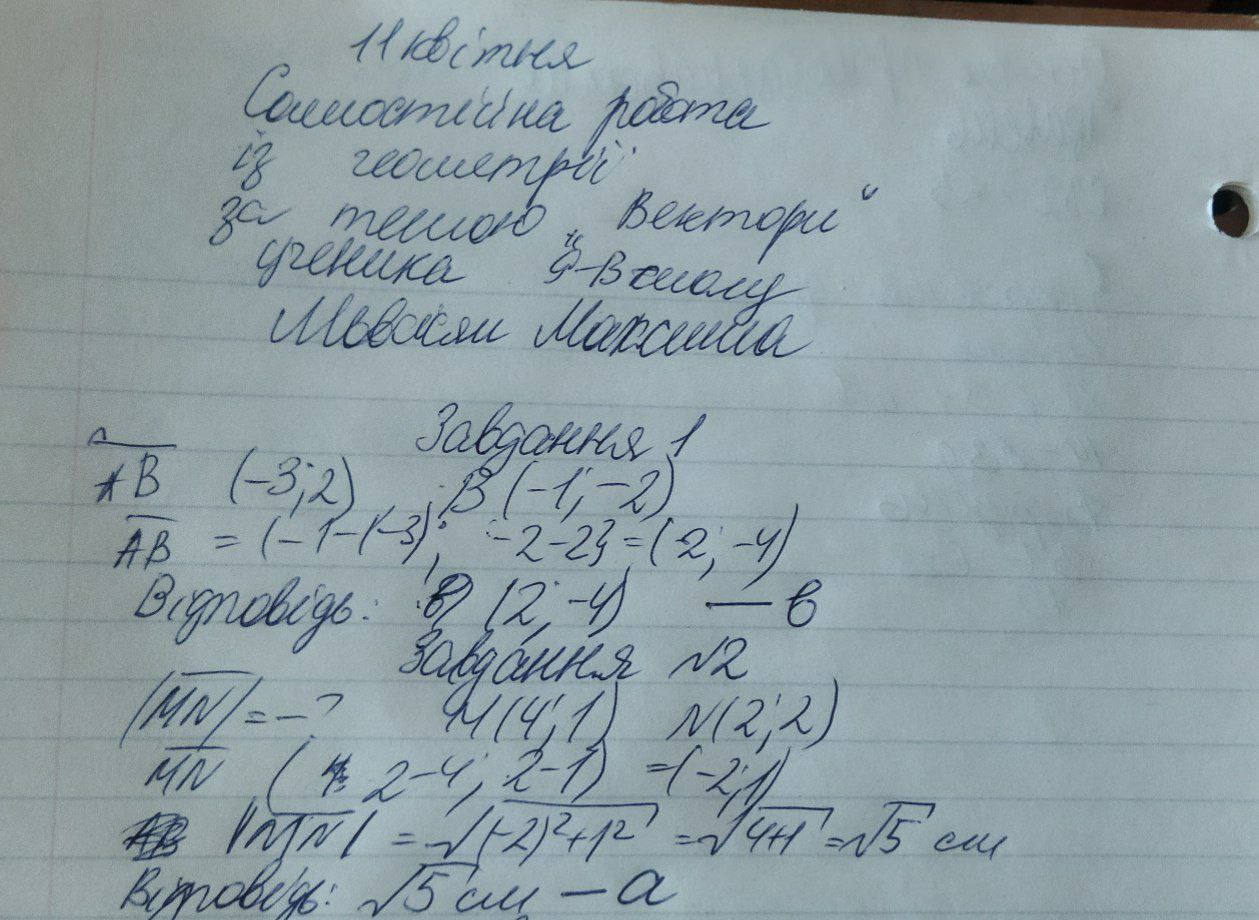 11 квітня
Самостійна робота
із геометрії
за темою „Вектори“
ученика 9-В класу
Максима
Завдання 1
AB (-3; 2) B (-1; -2)
AB = (-1-(-3); -2-2) = (2; -4)
Відповідь: (2; -4) — в
Завдання №2
|MN| = -? M(4; 1) N(2; 2)
MN (2-4; 2-1) = (-2; 1)
|MN| = √(-2)²+1² = √4+1 = √5 см
Відповідь: √5 см — а